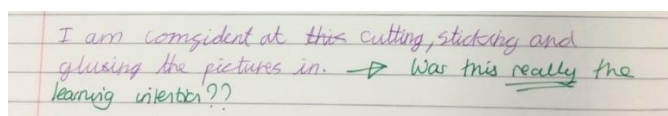 I am comsident at this cutting, sticking and
glusing the pictures in. → Was this really the
learning intention??